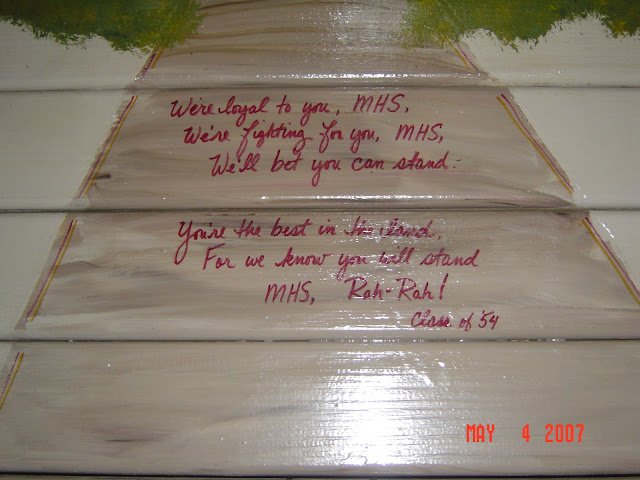 We're loyal to you, MHS,
We're fighting for you, MHS,
We'll bet you can stand.
You're the best in the land,
For we know you will stand
MHS, Rah-Rah!
Class of '54
MAY 4 2007